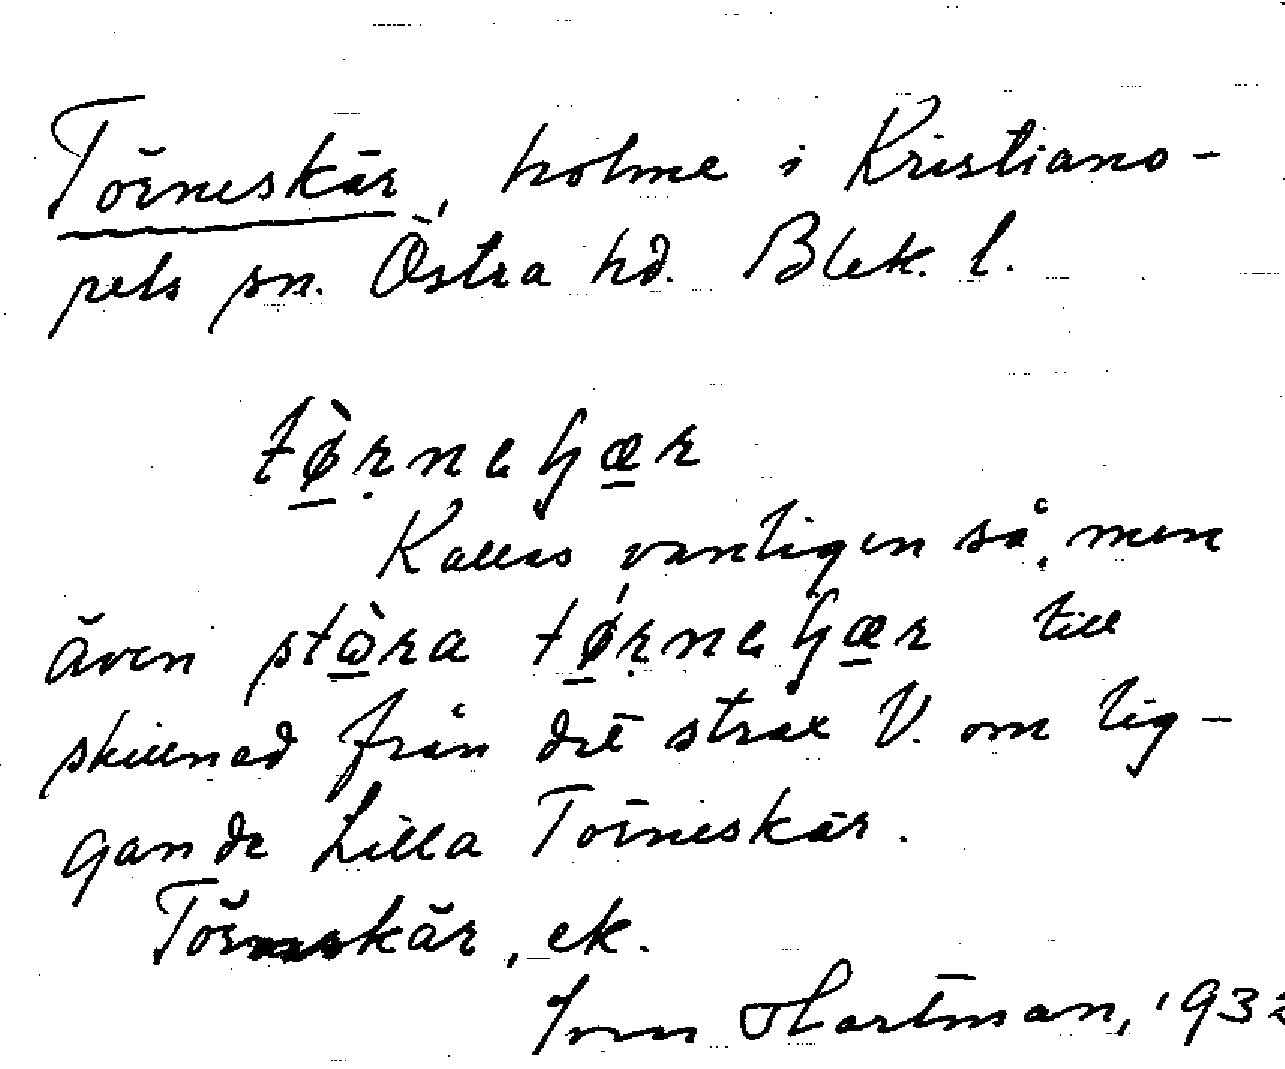 Törneskär, holme i Kristiano-
pels sn. Östra hd. Blek. l.
tø̀rneʃjær
Kallas vanligen så, men
även stòra tø̀rneʃjær till
skillnad från det strax V. om lig-
gande Lilla Törneskär.
Törneskär, ek.
Hartman, 193